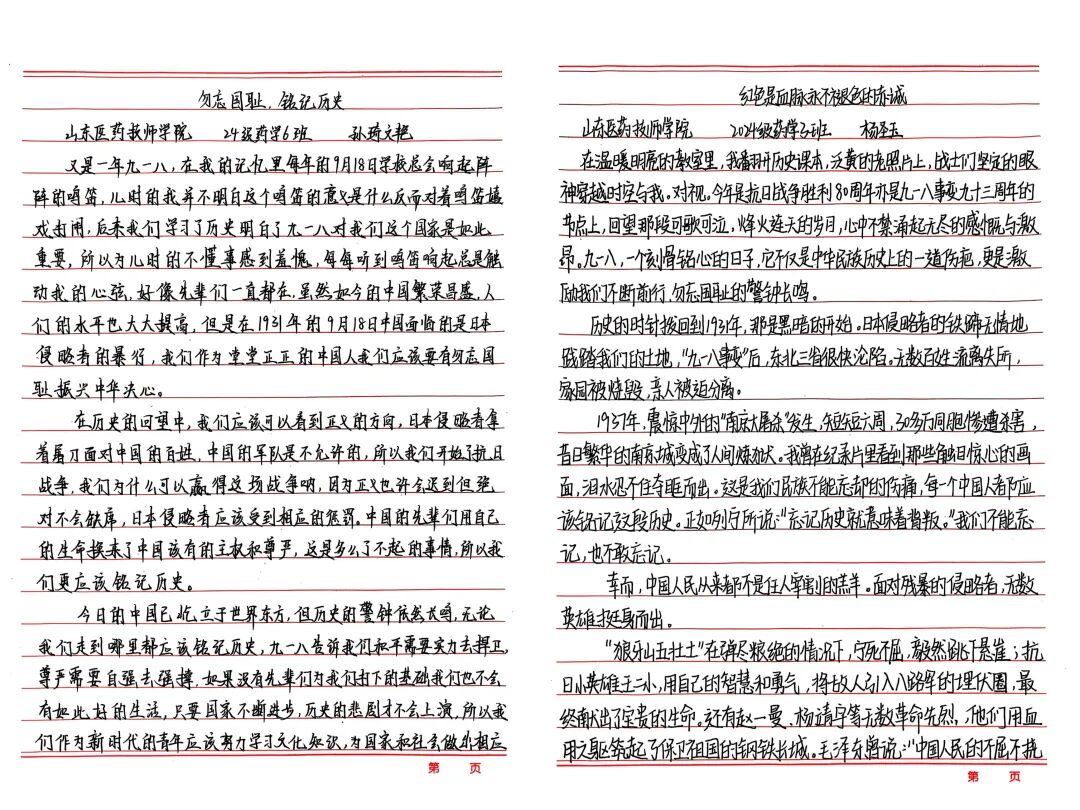 勿忘国耻，铭记历史
山东医药技师学院 24级药学6班 孙琦文艳
又是一年九一八，在我的记忆里每年的9月18日学校总会响起阵
阵的鸣笛，儿时的我并不明白这个鸣笛的意义是什么反而对着鸣笛嬉
戏打闹，后来我们学习了历史明白了九一八对我们这个国家是如此
重要，所以为儿时的不懂事感到羞愧，每每听到鸣笛响起总是触
动我的心弦，好像先辈们一直都在，虽然如今的中国繁荣昌盛，人
们的水平也大大提高，但是在1931年的9月18日中国面临的是日本
侵略者的暴行，我们作为堂堂正正的中国人我们应该要有勿忘国
耻振兴中华决心。
在历史的回望中，我们应该可以看到正义的方向，日本侵略者拿
着屠刀面对中国的百姓，中国的军队是不允许的，所以我们开始了抗日
战争，我们为什么可以赢得这场战争呐，因为正义也许会迟到但绝
对不会缺席，日本侵略者应该受到相应的惩罚。中国的先辈们用自己
的生命换来了中国该有的主权和尊严，这是多么了不起的事情，所以我
们更应该铭记历史。
今日的中国已屹立于世界东方，但历史的警钟依然长鸣，无论
我们走到哪里都应该铭记历史，九一八告诉我们和平需要实力去捍卫，
尊严需要自强去强撑，如果没有先辈们为我们打下的基础我们也不会
有如此好的生活，只要国家不断进步，历史的悲剧才不会上演，所以我
们作为新时代的青年应该努力学习文化知识，为国家和社会做出相应
第 页
红色是血脉永不褪色的赤诚
山东医药技师学院 2024级药学3班 杨圣玉
在温暖明亮的教室里，我翻开历史课本，泛黄的老照片上，战士们坚定的眼
神穿越时空与我。对视。今年是抗日战争胜利80周年亦是九一八事变九十三周年的
节点上，回望那段可歌可泣，烽火连天的岁月，心中不禁涌起无尽的感慨与激
昂。九一八，一个刻骨铭心的日子，它不仅是中华民族历史上的一道伤疤，更是激
励我们不断前行，勿忘国耻的警钟长鸣。
历史的时针拨回到1931年，那是黑暗的开始。日本侵略者的铁蹄无情地
践踏我们的土地，“九一八事变”后，东北三省很快沦陷。无数百姓流离失所，
家园被烧毁，亲人被迫分离。
1937年，震惊中外的“南京大屠杀”发生，短短六周，30多万同胞惨遭杀害，
昔日繁华的南京城变成了人间炼狱。我曾在纪录片里看到那些触目惊心的画
面，泪水忍不住夺眶而出。这是我们民族不能忘却的伤痛，每一个中国人都应
该铭记这段历史。正如列宁所说：“忘记历史就意味着背叛。”我们不能忘
记，也不敢忘记。
幸而，中国人民从来都不是任人宰割的羔羊。面对残暴的侵略者，无数
英雄挺身而出。
“狼牙山五壮士”在弹尽粮绝的情况下，宁死不屈，毅然跳下悬崖；抗
日小英雄王二小，用自己的智慧和勇气，将敌人引入八路军的埋伏圈，最
终献出了宝贵的生命。还有赵一曼、杨靖宇等无数革命先烈，他们用血
肉之躯筑起了保卫祖国的钢铁长城。毛泽东曾说：“中国人民的不屈不挠
第 页